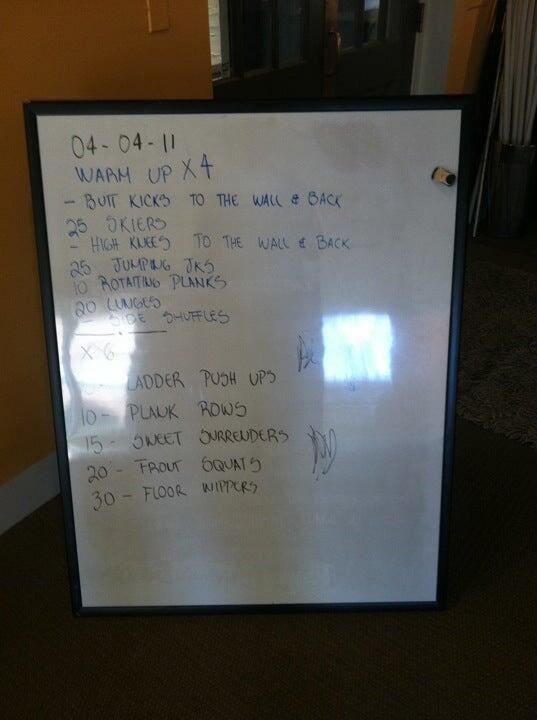 04-04-11
WARM UP X4
- BUTT KICKS TO THE WALL & BACK
25 SKIERS
- HIGH KNEES TO THE WALL & BACK
25 JUMPING JKS
10 ROTATING PLANKS
20 LUNGES
- SIDE SHUFFLES
X 6
- LADDER PUSH UPS
10 - PLANK ROWS
15 - SWEET SURRENDERS
20 - FROUT SQUATS
30 - FLOOR WIPPERS